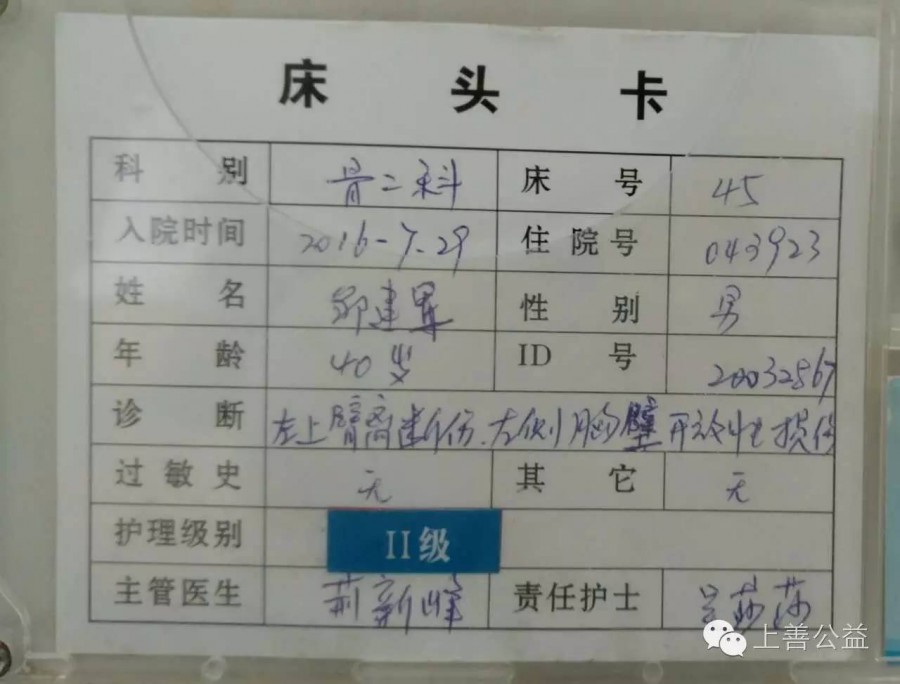 床头卡
科别 骨二科 床号 45
入院时间 2016-7-29 住院号 043923
姓名 邹建军 性别 男
年龄 40岁 ID号 20032867
诊断 左上臂离断伤.左侧胸壁开放性损伤
过敏史 无 其它 无
护理级别 II级
主管医生 荆新峰 责任护士 吴莎莎
上善公益